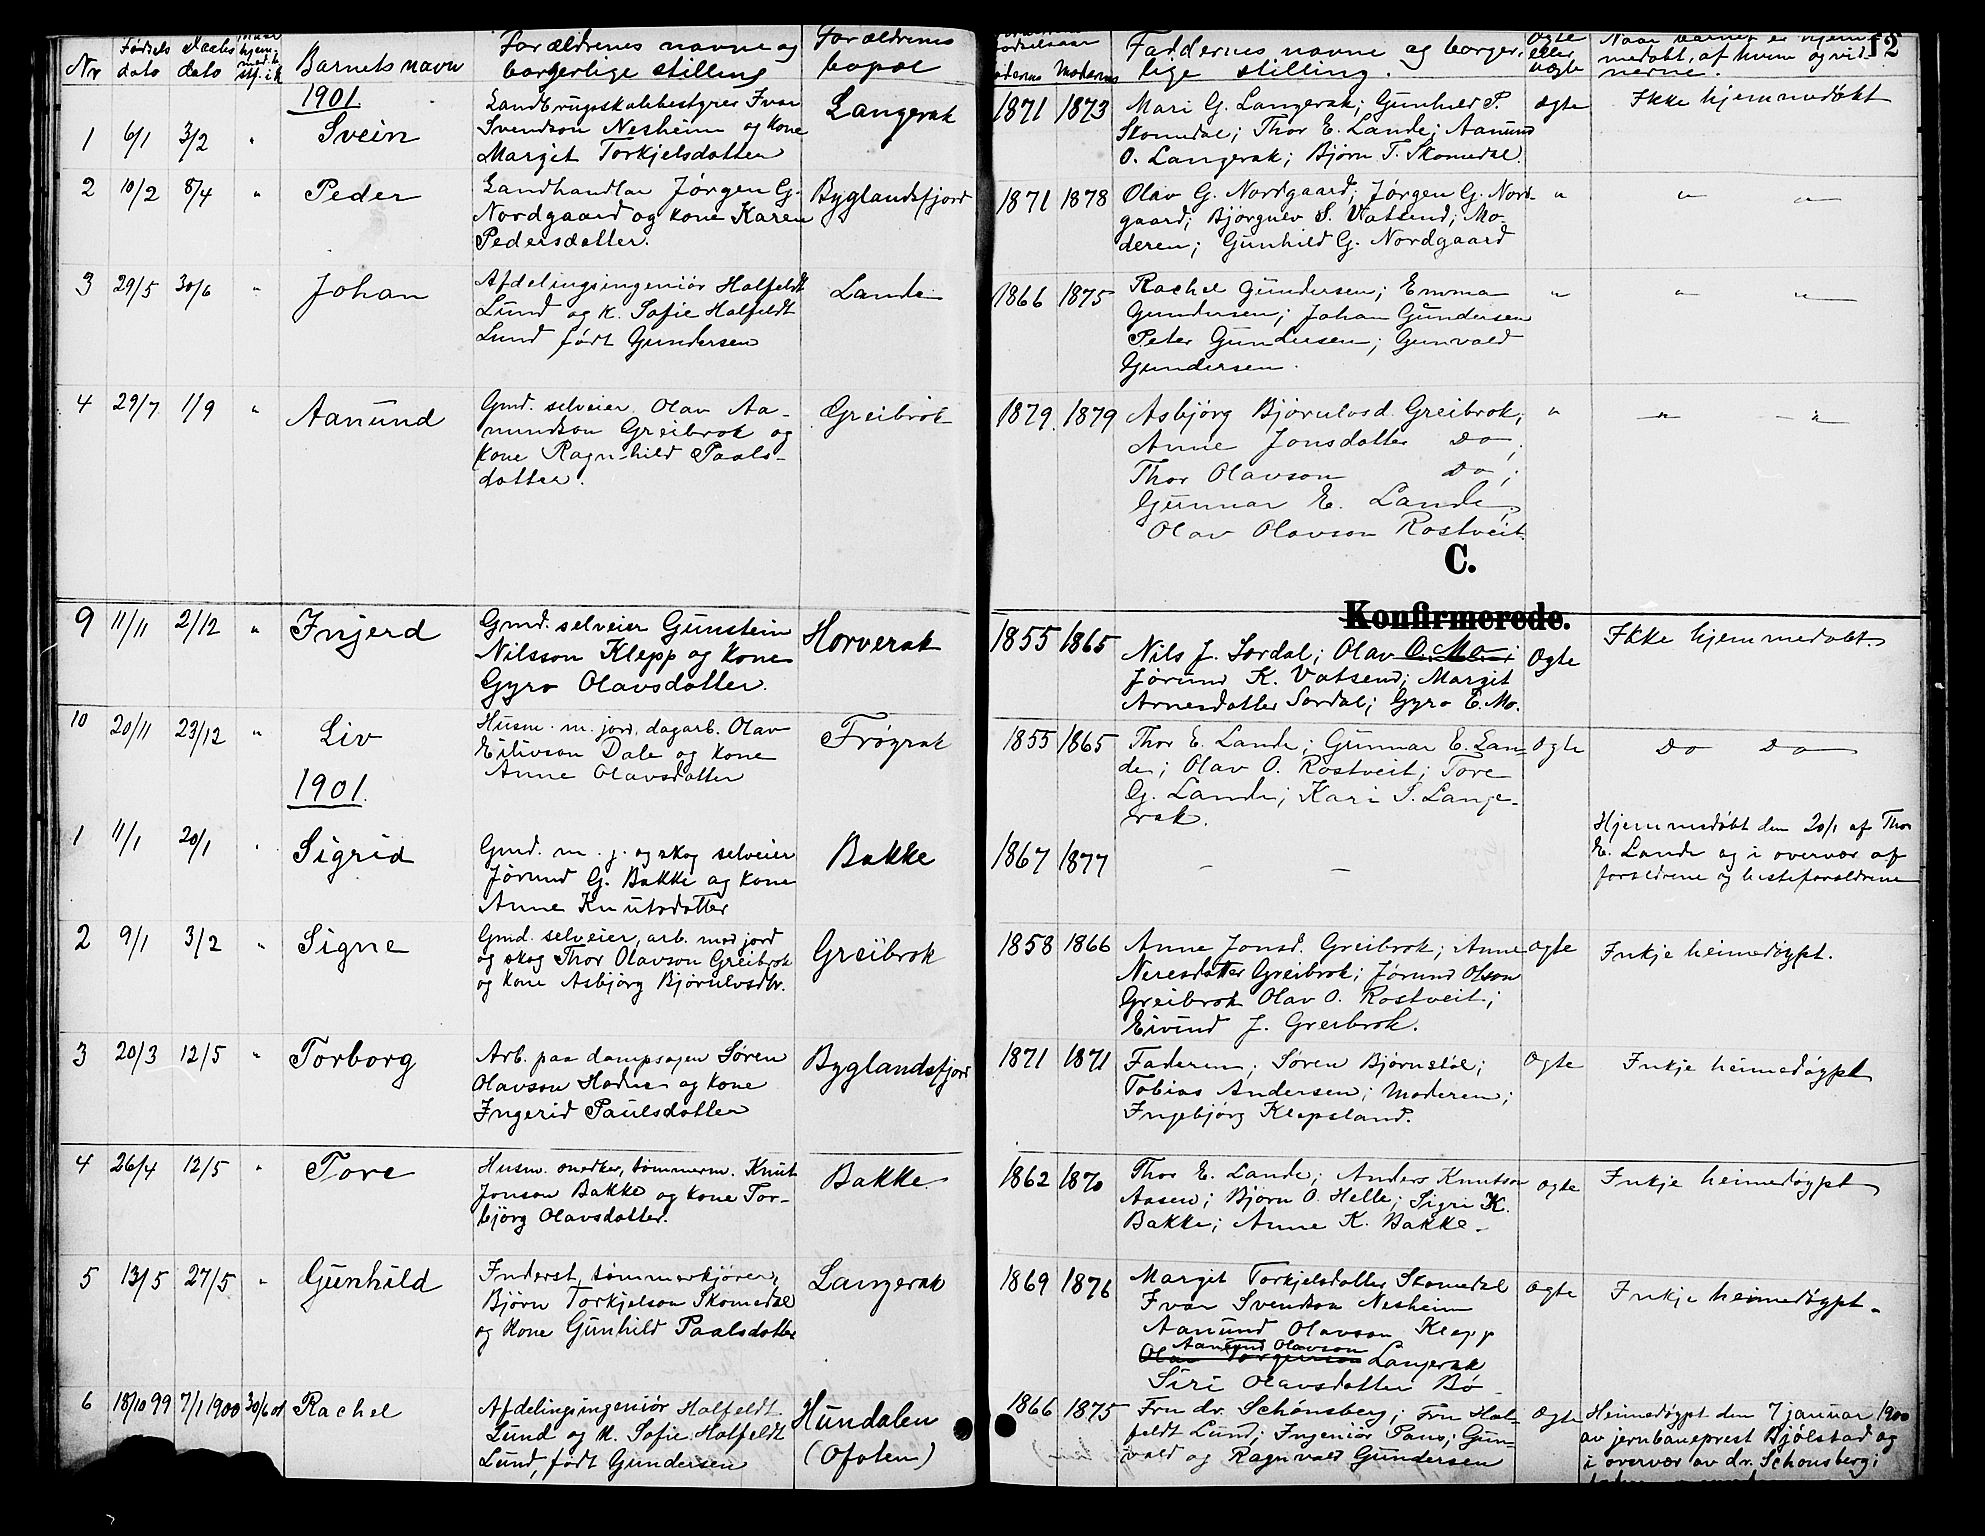 Nr
Fødsels dato
Daabs dato
Barnets navn
Forældrenes navne og borgerlige stilling
Forældrenes bopæl
Moderens
Faddernes navne og borgerlige stilling.
Ægte eller uægte
Naar barnet er hjemmedøbt, af hvem og vidnerne.
12
1901
1 6/1 3/2 " Svein
Landbrugsskolebestyrer Ivar
Svendson Nesheim og kone
Margit Torkjelsdatter
Langerak
1871 1873
Mari G. Langerak; Gunhild P.
Skomedal; Thor E. Lande; Aanund
O. Langerak; Bjørn T. Skomedal.
Ægte
Ikke hjemmedøbt
2 10/2 8/4 " Peder
Landhandlar Jørgen G.
Nordgaard og kone Karen
Pedersdatter.
Byglandsfjord
1871 1878
Olav G. Nordgaard; Jørgen G. Nord-
gaard; Bjørgulv S. Vatsend; Mo-
deren; Gunhild G. Nordgaard
" " "
3 29/5 30/6 " Johan
Afdelingsingeniør Halfeldt
Lund og k. Sofie Halfeldt
Lund født Gundersen
Lande
1866 1875
Rachel Gundersen; Emma
Gundersen; Johan Gundersen
Peter Gundersen; Gunvald
Gundersen.
" " "
4 29/7 1/9 " Aanund
Gmd. selveier Olav Aa-
nundson Greibrok og
kone Ragnhild Paals-
datter.
Greibrok
1879 1879
Asbjørg Bjørnlosd. Greibrok;
Anne Jonsdatter Do;
Thor Olavson Do;
Gunnar E. Lande;
Olav Olavson Rostveit.
" " "
C.
Konfirmerede.
9 11/11 2/12 " Injerd
Gmd. selveier Gunstein
Nilsson Klepp og kone
Gyro Olavsdatter.
Horverak
1855 1865
Nils J. Sordal; Olav O. Mo;
Jørund K. Vatsend; Margit
Arnesdatter Sordal; Gyro E. Mo.
Ægte
Ikke hjemmedøbt.
10 20/11 23/12 " Liv
Husm. m. jord, dagarb. Olav
Eilivson Dale og kone
Anne Olavsdatter
Frøyrak
1855 1865
Thor E. Lande; Gunnar E. Lan-
de; Olav O. Rostveit; Tore
G. Lande; Kari S. Lange-
rak.
Ægte
Do Do
1901.
1 11/1 20/1 " Sigrid
Gmd. m. j. og skog selveier
Jørund G. Bakke og kone
Anne Knutsdatter
Bakke
1867 1877
— —
Hjemmedøbt den 20/1 af Thor
E. Lande og i overvær af
forældrene og besteforældrene
2 9/1 3/2 " Signe
Gmd. selveier, arb. med jord
og skog Thor Olavson Greibrok
og kone Asbjørg Bjørnlvsdtr.
Greibrok
1858 1866
Anne Jonsd. Greibrok; Anne
Neresdatter Greibrok; Jørund Olson
Greibrok Olav O. Rostveit;
Eivind J. Greibrok.
Ægte
Inkje heimedøypt.
3 20/3 12/5 " Torborg
Arb. paa dampsagen Søren
Olavson Hodne og kone
Ingerid Paulsdatter
Byglandsfjord
1871 1871
Faderen; Søren Bjørnstøl;
Tobias Andersen; Moderen;
Ingebjørg Klepsland.
Ægte
Inkje heimedøypt
4 26/4 12/5 " Tore
Husm. snedker, tømmerm. Knut
Jonson Bakke og kone Tor-
bjørg Olavsdatter.
Bakke
1862 1870
Thor E. Lande; Anders Knutson
Aasen; Bjørn O. Helle; Sigri K.
Bakke; Anne K. Bakke.
Ægte
Inkje heimedøypt
5 13/5 27/5 " Gunhild
Inderst, tømmerkjører,
Bjørn Torkjelson Skomedal
og kone Gunhild Paalsdatter
Langerak
1869 1876
Margit Torkjelsdatter Skomedal
Ivar Svendson Nesheim
Aanund Olavson Klepp
Aanund Olavson
Olav Torgeirson Langerak
Siri Olavsdatter Bø
Ægte
Inkje heimedøypt.
6 18/10 99 7/1 1900 30/6 01 Rachel
Afdelingsingeniør Halfeldt
Lund og k. Sofie Halfeldt
Lund, født Gundersen
Hundalen
(Ofoten)
1866 1875
Fru dr. Schönsberg; Fru Hal-
feldt Lund; Ingeniør Paus; Gun-
vald og Ragnvald Gundersen
Ægte
Heimedøypt den 7 januar 1900
av jernbaneprest Bjølstad og
i overvær av dr. Schønsberg;